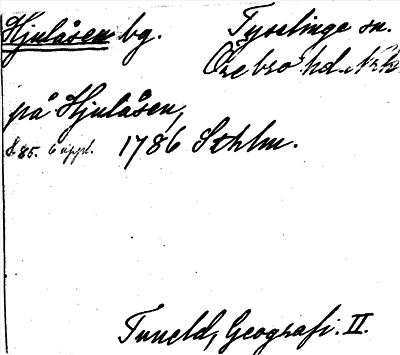 Hjulåsen bg. Tysslinge sn.
Örebro hd.
på Hjulåsen,
S. 85. 6 uppl. 1786 Sthlm.
Tuneld, Geografi. II.